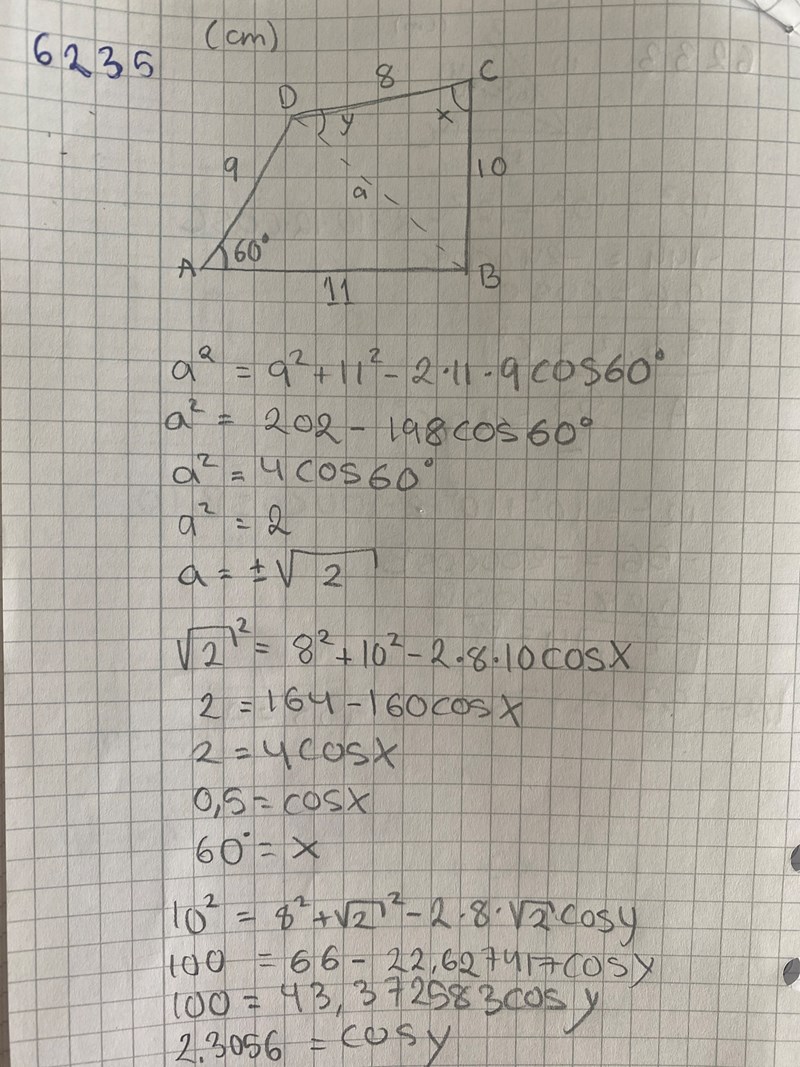 6235 (cm)
D 8 C
y x
9 a 10
A 60° B
11
a² = 9² + 11² - 2·11·9cos60°
a² = 202 - 198cos60°
a² = 4cos60°
a² = 2
a = ±√2
√2² = 8² + 10² - 2·8·10cosx
2 = 164 - 160cosx
2 = 4cosx
0,5 = cosx
60° = x
10² = 8² + √2² - 2·8·√2cosy
100 = 66 - 22,627417cosy
100 = 43,372583cosy
2.3056 = cosy